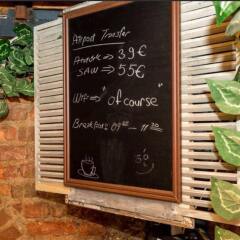 Airport Transfer
Atatürk → 39€
SAW → 55€
Wifi → "of course"
Breakfast 09 00 - 11 30